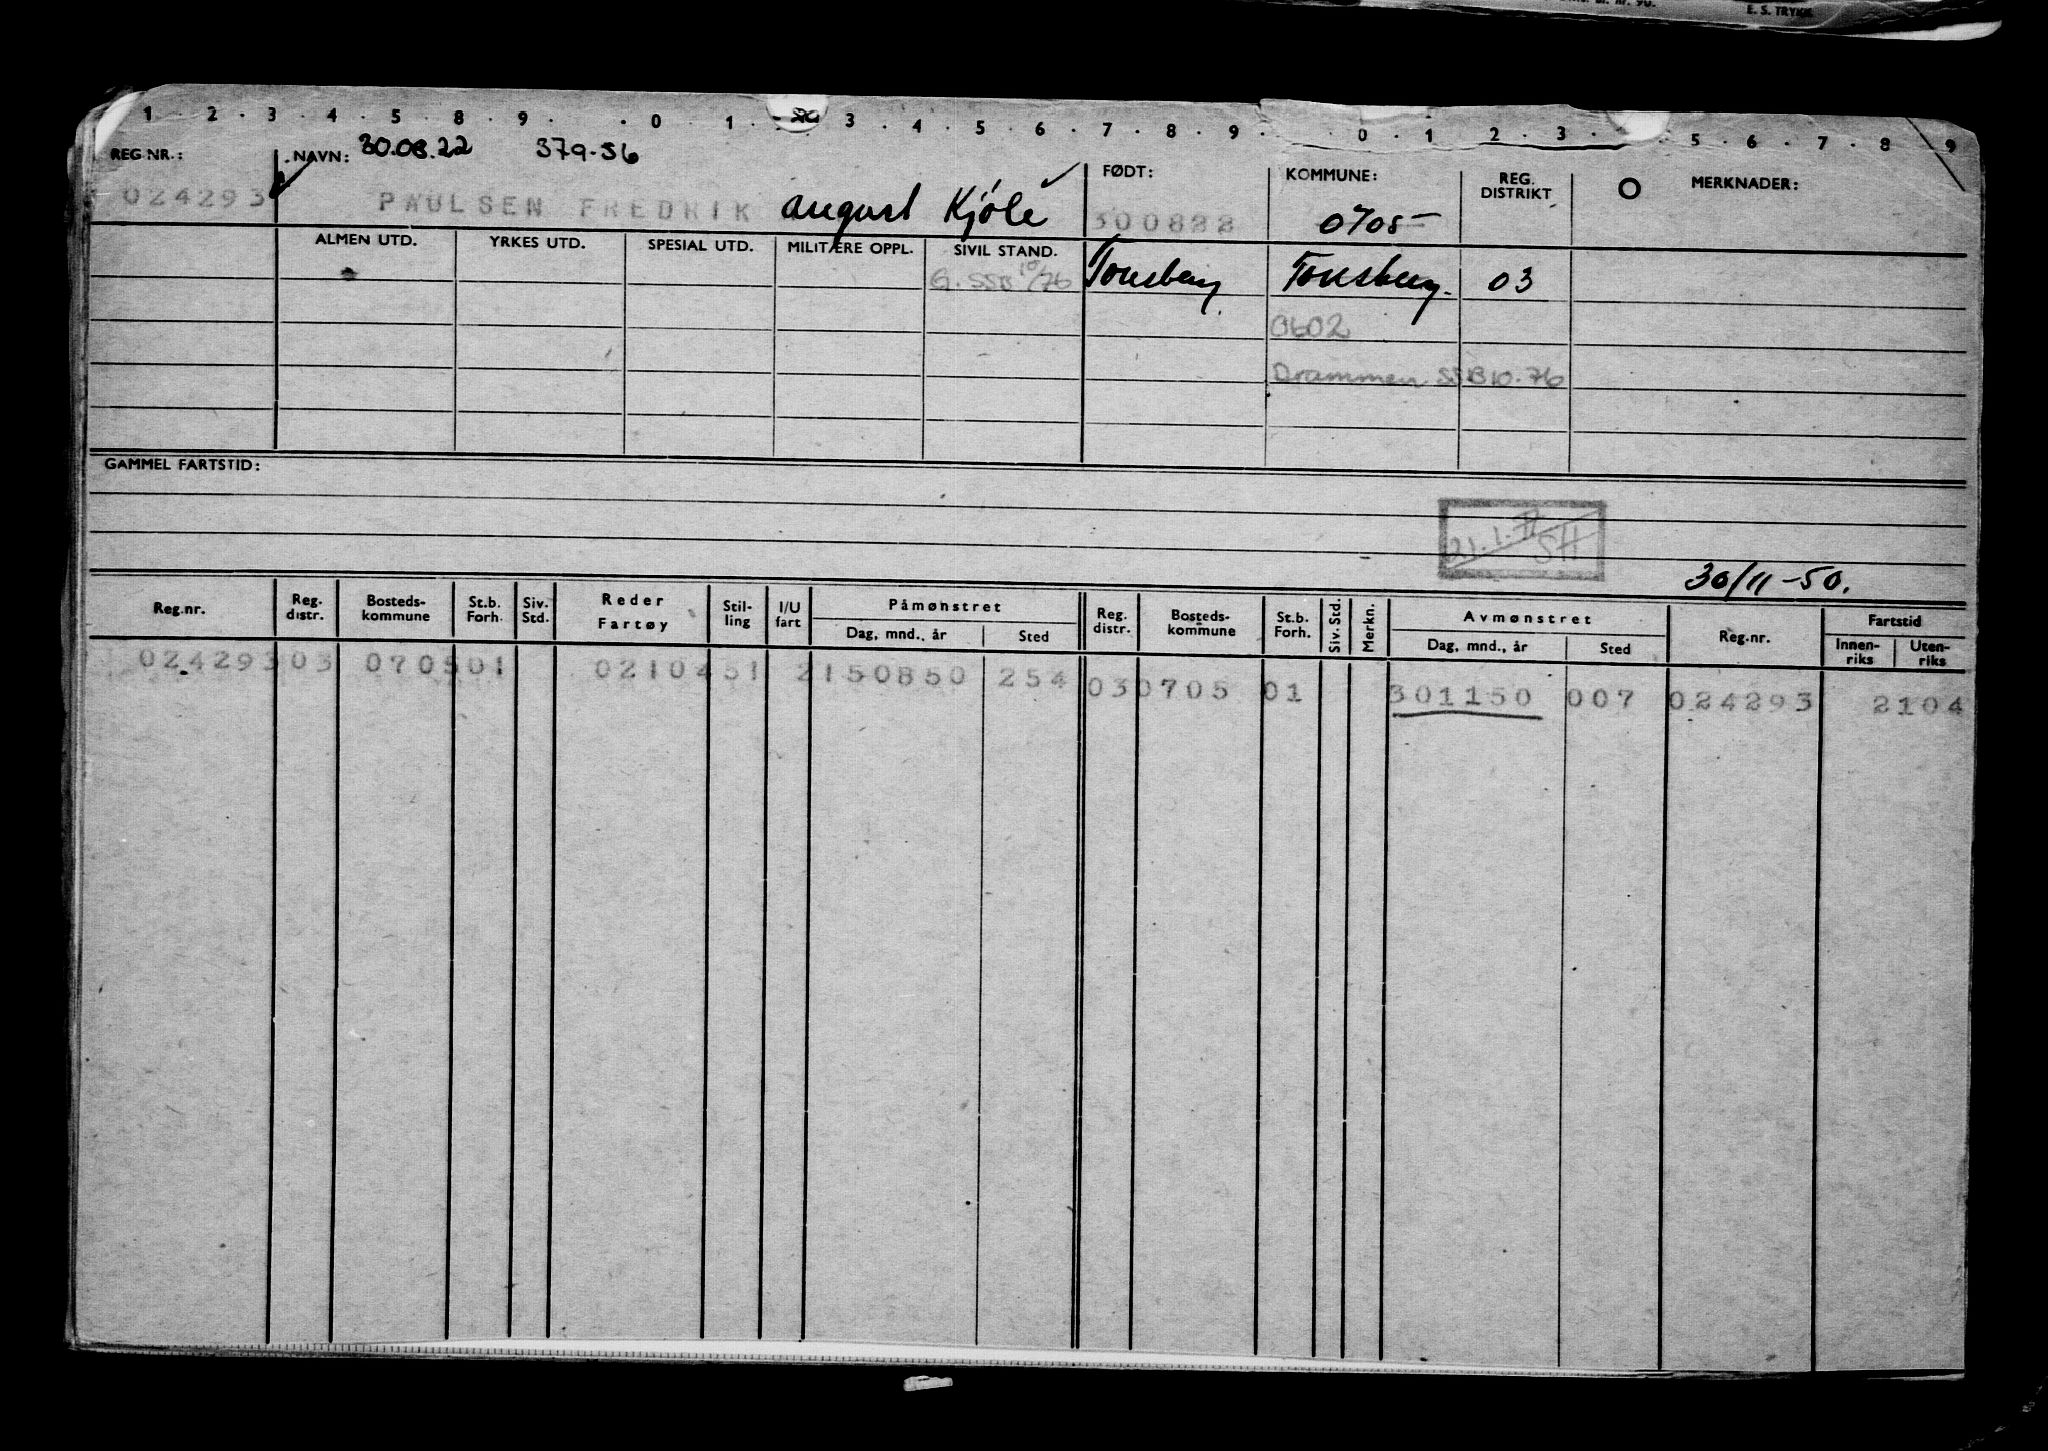 E. S. TRYKK
1 . 2 . 3 . 4 . 5 . 8 . 9 . . 0 . 1 . 3 . 4 . 5 . 6 . 7 . 8 . 9 . 0 . 1 . 2 . 3 . 5 . 6 . 7 . 8 . 9
REG NR.: NAVN: 30.08.22 379-56 FØDT: KOMMUNE: REG. DISTRIKT O MERKNADER:
024293 PAULSEN FREDRIK august Kjöle 300822 0705-
ALMEN UTD. YRKES UTD. SPESIAL UTD. MILITÆRE OPPL. SIVIL STAND.
G. SSB 10/76 Tønsberg Tønsberg. 03
0602
Drammen SSB 10.76
GAMMEL FARTSTID:
21.1.77 SH
30/11-50.
Reg.nr. Reg. distr. Bosteds-kommune St.b. Forh. Siv. Std. Reder Fartøy Stil-ling I/U fart Påmønstret Dag, mnd., år Sted Reg. distr. Bosteds-kommune St.b. Forh. Siv. Std. Merkn. Avmønstret Dag, mnd., år Sted Reg.nr. Fartstid Innen-riks Uten-riks
024293 03 0705 01 02104 51 2 150850 254 03 0705 01 301150 007 024293 2104